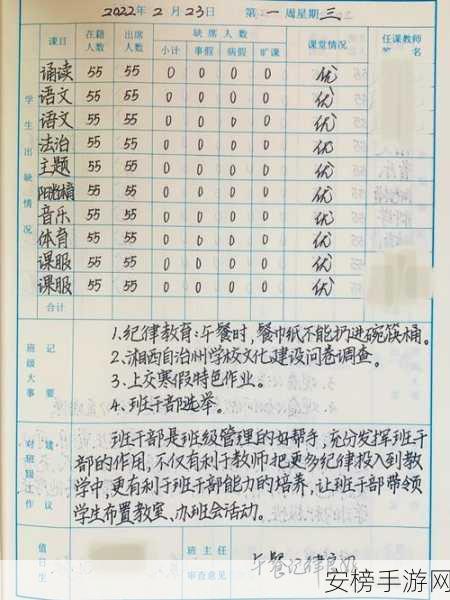 2022年2月23日 第一周星期三
课目 在籍人数 出席人数 缺席人数 课堂情况 任课教师签名
小计 事假 病假 旷课
学生出缺情况
诵读 55 55 0 0 0 0 优
语文 55 55 0 0 0 0 优
语文 55 55 0 0 0 0 优
法治 55 55 0 0 0 0 优
主题 55 55 0 0 0 0 优
阳光体育 55 55 0 0 0 0 优
音乐 55 55 0 0 0 0 优
体育 55 55 0 0 0 0 优
课服 55 55 0 0 0 0 优
课服 55 55 0 0 0 0 优
合计
班级大事 摘要
1.纪律教育:午餐时,餐巾纸不能扔进碗筷桶。
2.湘西自治州学校文化建设问卷调查。
3.上交寒假特色作业。
4.班干部选举。
对班级工作 建议
班干部是班级管理的好帮手,充分发挥班干
部的作用,不仅有利于教师把更多纪律投入到教
学中,更有利于班干部能力的培养,让班干部带领
学生布置教室、办班会活动。
值日生
班主任审查意见
午餐纪律良好
安榜手游网